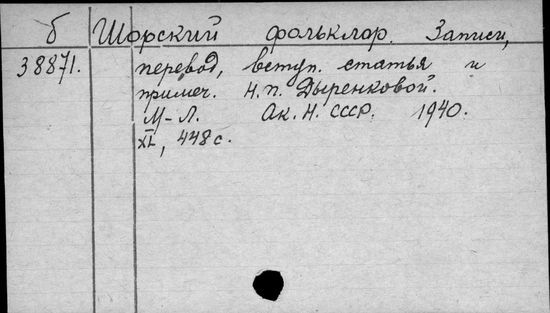 б Шорский фольклор. Записи,
38871. перевод, вступ. статья и
примеч. Н.П. Дыренковой.
М-Л. Ак. Н. СССР. 1940.
XL, 448 с.